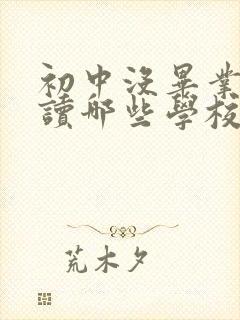 初中没畢業
讀哪些學校
荒木夕